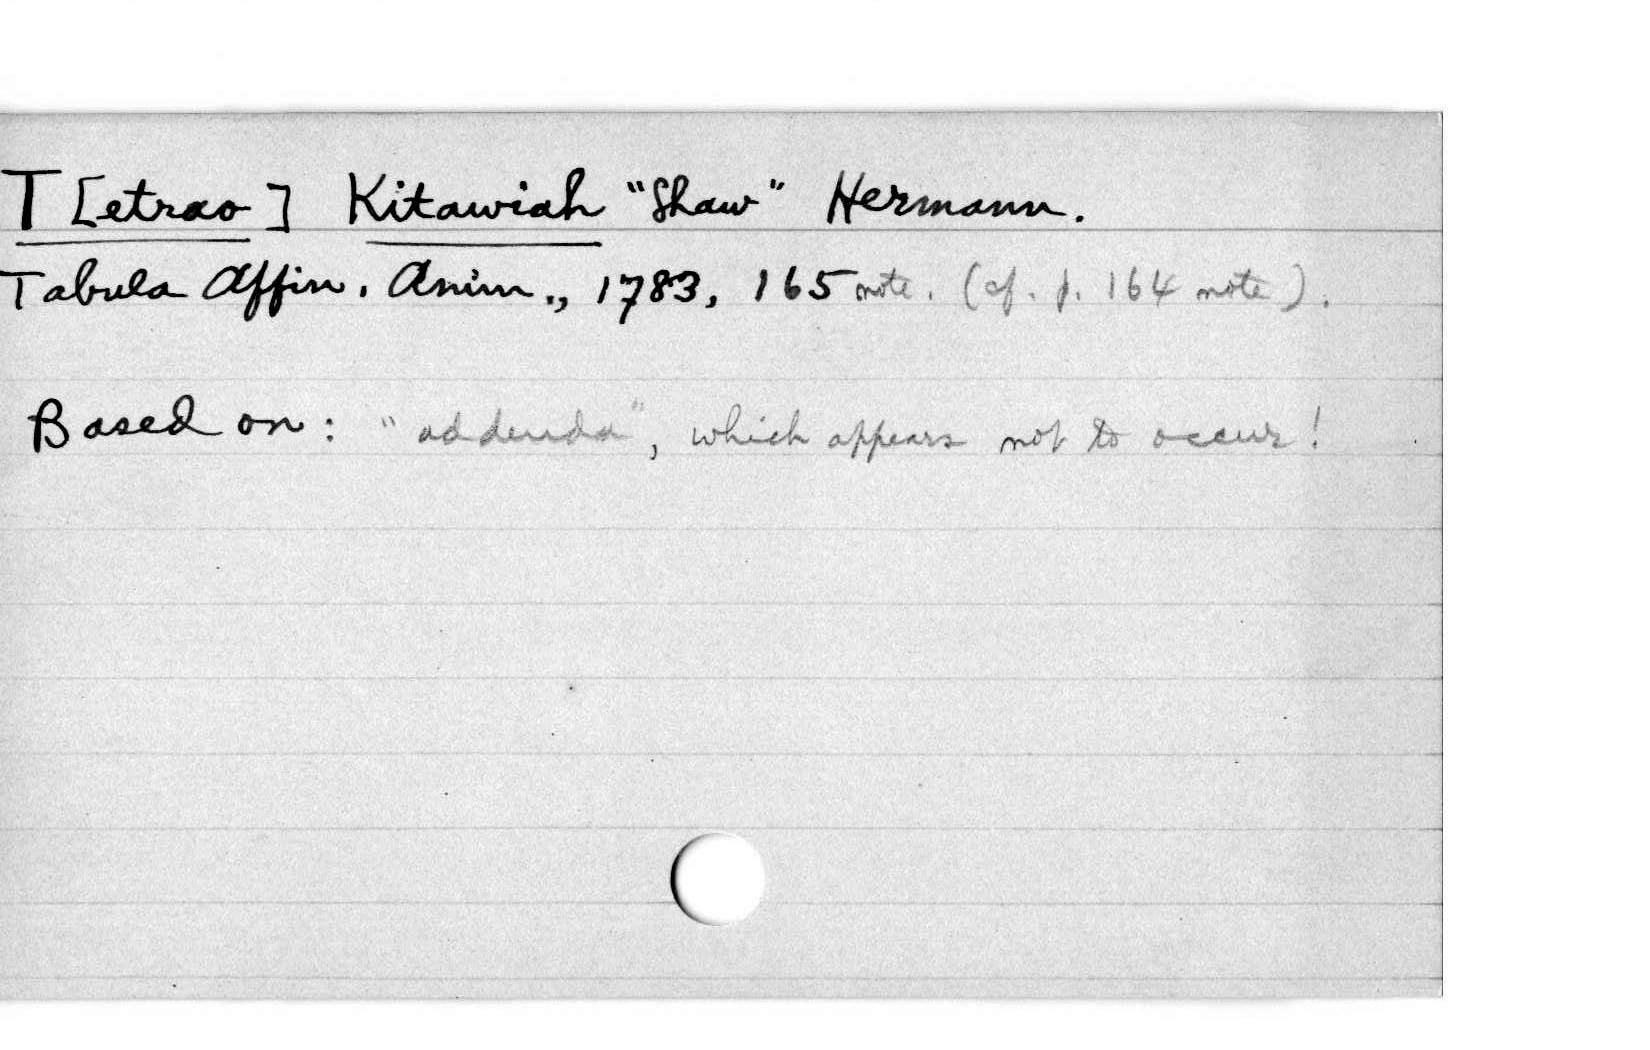 T[etrao] Kitawiah "Shaw" Hermann.
Tabula Affin. Anim., 1783, 165 note. (cf. p. 164 note).
Based on: "addenda", which appears not to occur!